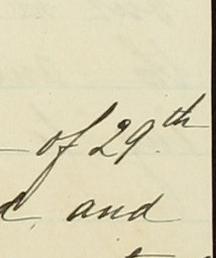 of 29th
and